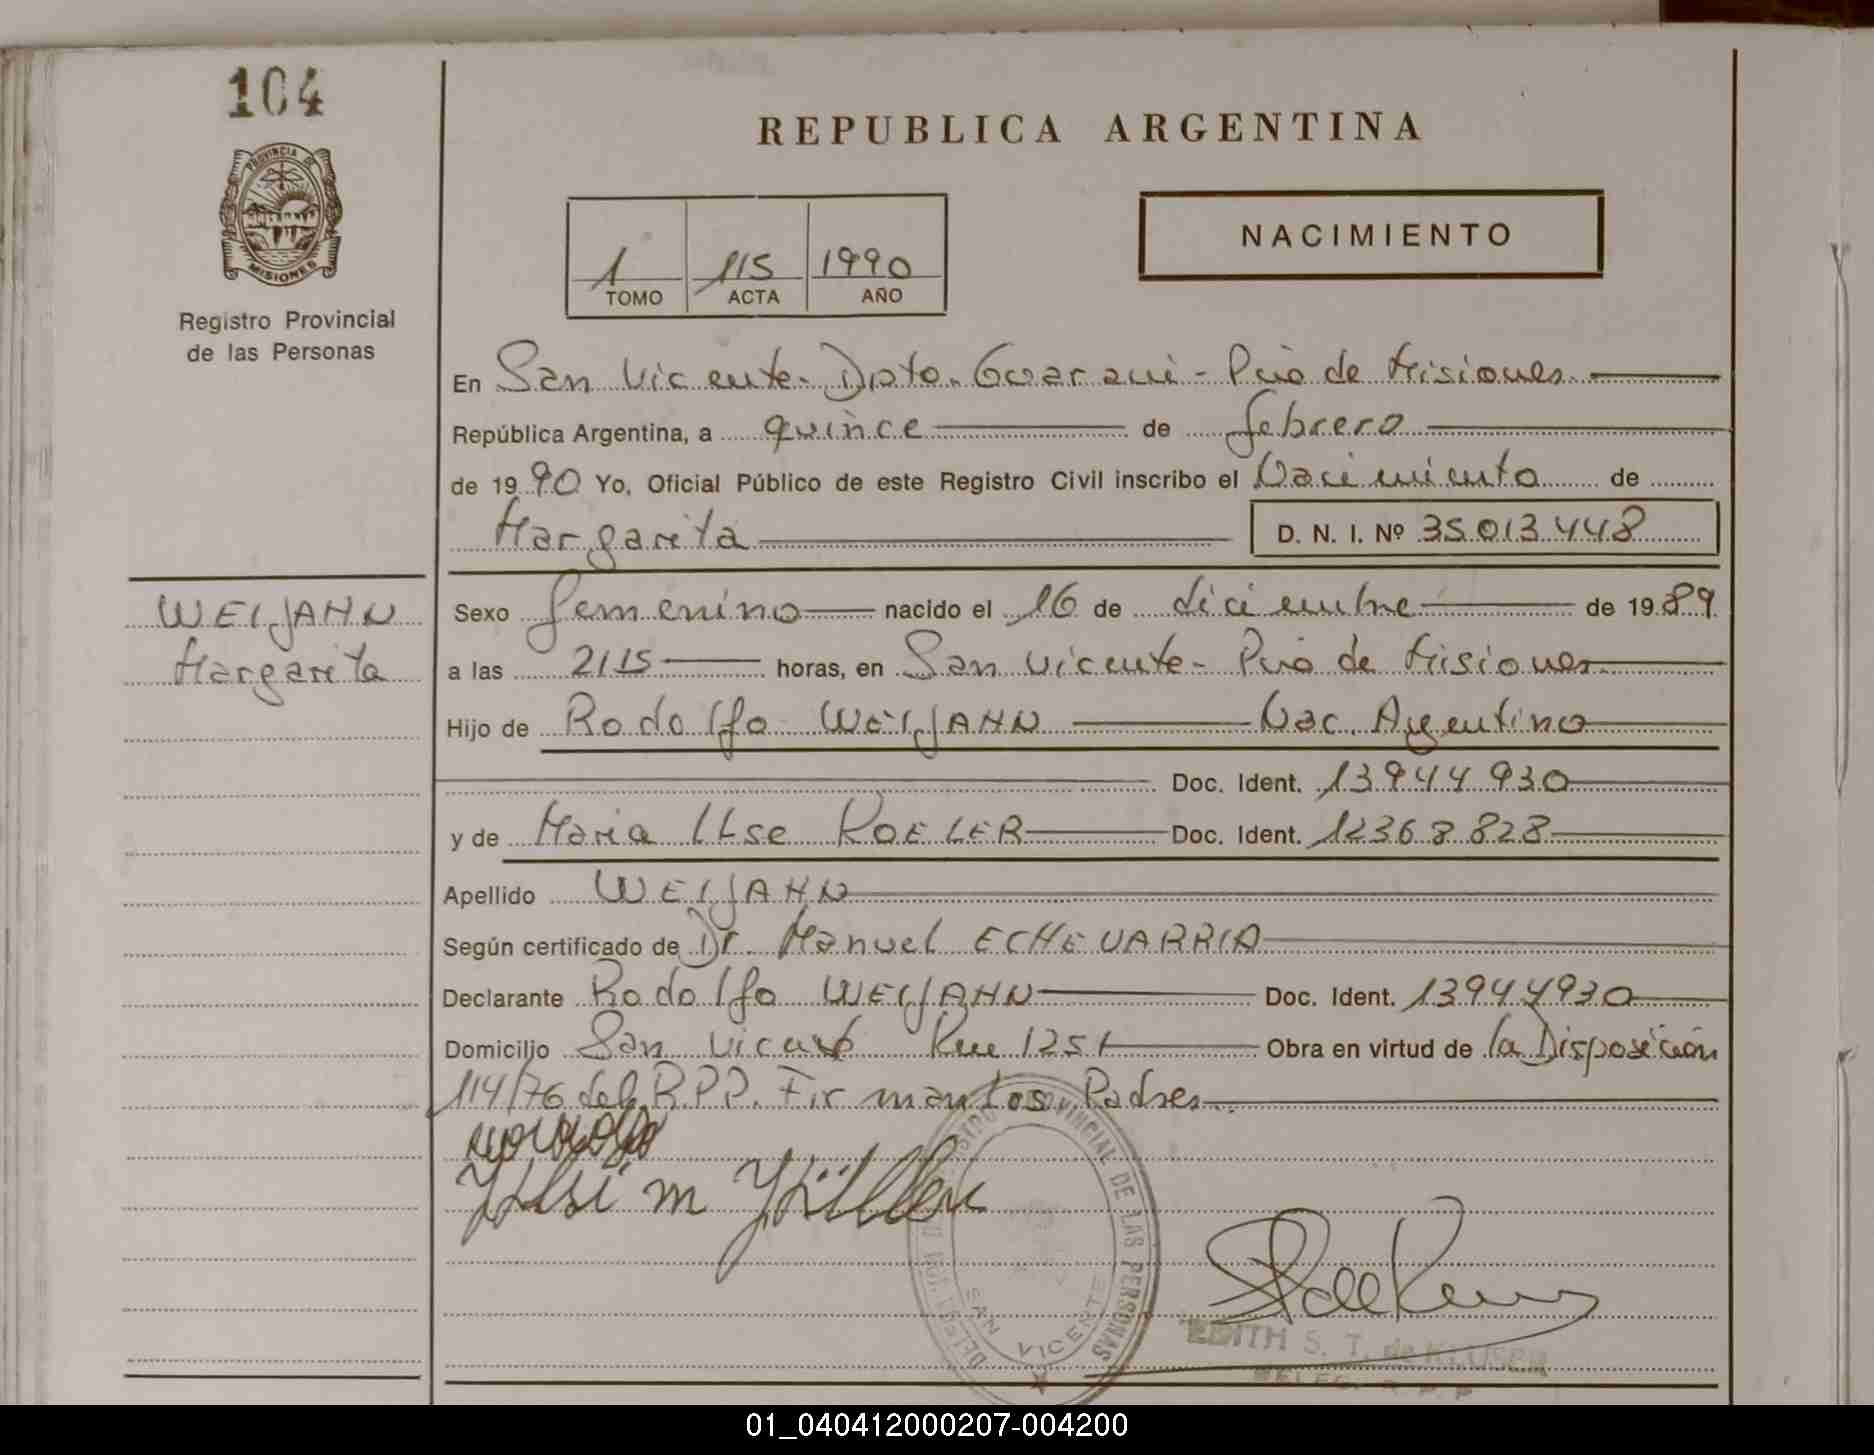 104
PROVINCIA DE
MISIONES
Registro Provincial
de las Personas
REPUBLICA ARGENTINA
NACIMIENTO
1 115 1990
TOMO ACTA AÑO
En San Vicente- Dpto. Guarani - Pcia de Misiones.
República Argentina, a quince de febrero
de 1990 Yo, Oficial Público de este Registro Civil inscribo el Nacimiento de
Margarita D. N. I. Nº 35.013.448
WEIJAHN
Margarita
Sexo femenino nacido el 16 de diciembre de 1989
a las 2115 horas, en San Vicente- Pcia de Misiones
Hijo de Rodolfo WEIJAHN Nac. Argentino
Doc. Ident. 13944930
y de Maria ILse KOELER Doc. Ident. 12368828
Apellido WEIJAHN
Según certificado de Dr. Manuel ECHEVARRIA
Declarante Rodolfo WEIJAHN Doc. Ident. 13944930
Domicilio San Vicente Km 1251 Obra en virtud de la Disposición
114/76 del R.P.P. Firman los Padres.
REGISTRO PROVINCIAL DE LAS PERSONAS
SAN VICENTE
EDITH S. T. de KLUSER
DELEG. R. P. P.
01_040412000207-004200